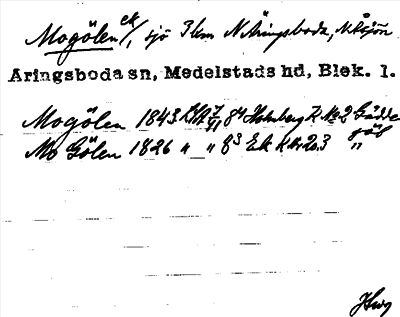 Mogölen ek/, sjö 3 km N Åringsboda, N. Åsjön
Aringsboda sn, Medelstads hd, Blek. l.
Mogölen 1843 LSA 7/11 84 Holmberg K No 2 Gädde
göl
Mo Gölen 1826 " " 83 Ek K No 203 "